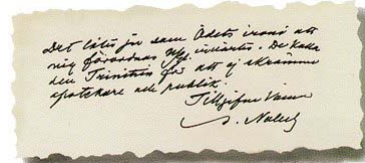 Det låter ju som Ödets ironi att
mig förordnas Ngl. invärtes. De kalla
den Trinitrin för att ej skrämma
apotekare och publik.
Tillgifne Vännen
A. Nobel